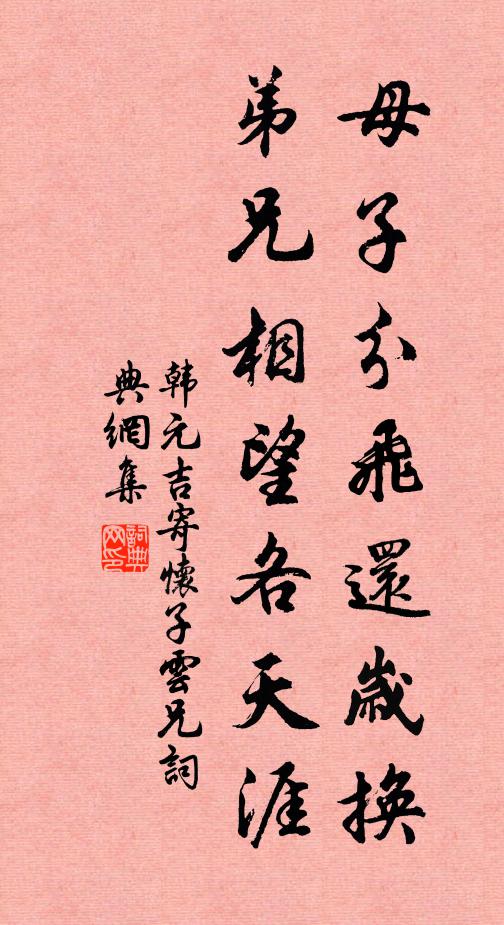 母子分飛還歲換
弟兄相望各天涯
韩元吉寄懷子雲兄詞
典網集
詞典網印